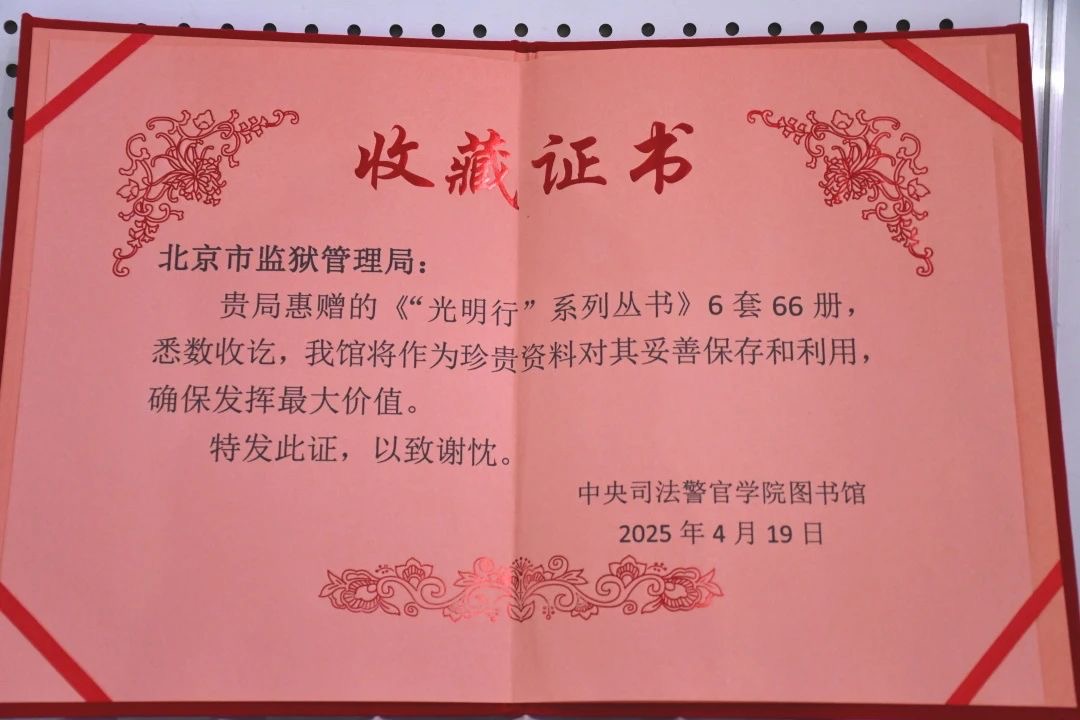 收藏证书
北京市监狱管理局：
贵局惠赠的《“光明行”系列丛书》6 套 66 册，
悉数收讫，我馆将作为珍贵资料对其妥善保存和利用，
确保发挥最大价值。
特发此证，以致谢忱。
中央司法警官学院图书馆
2025 年 4 月 19 日